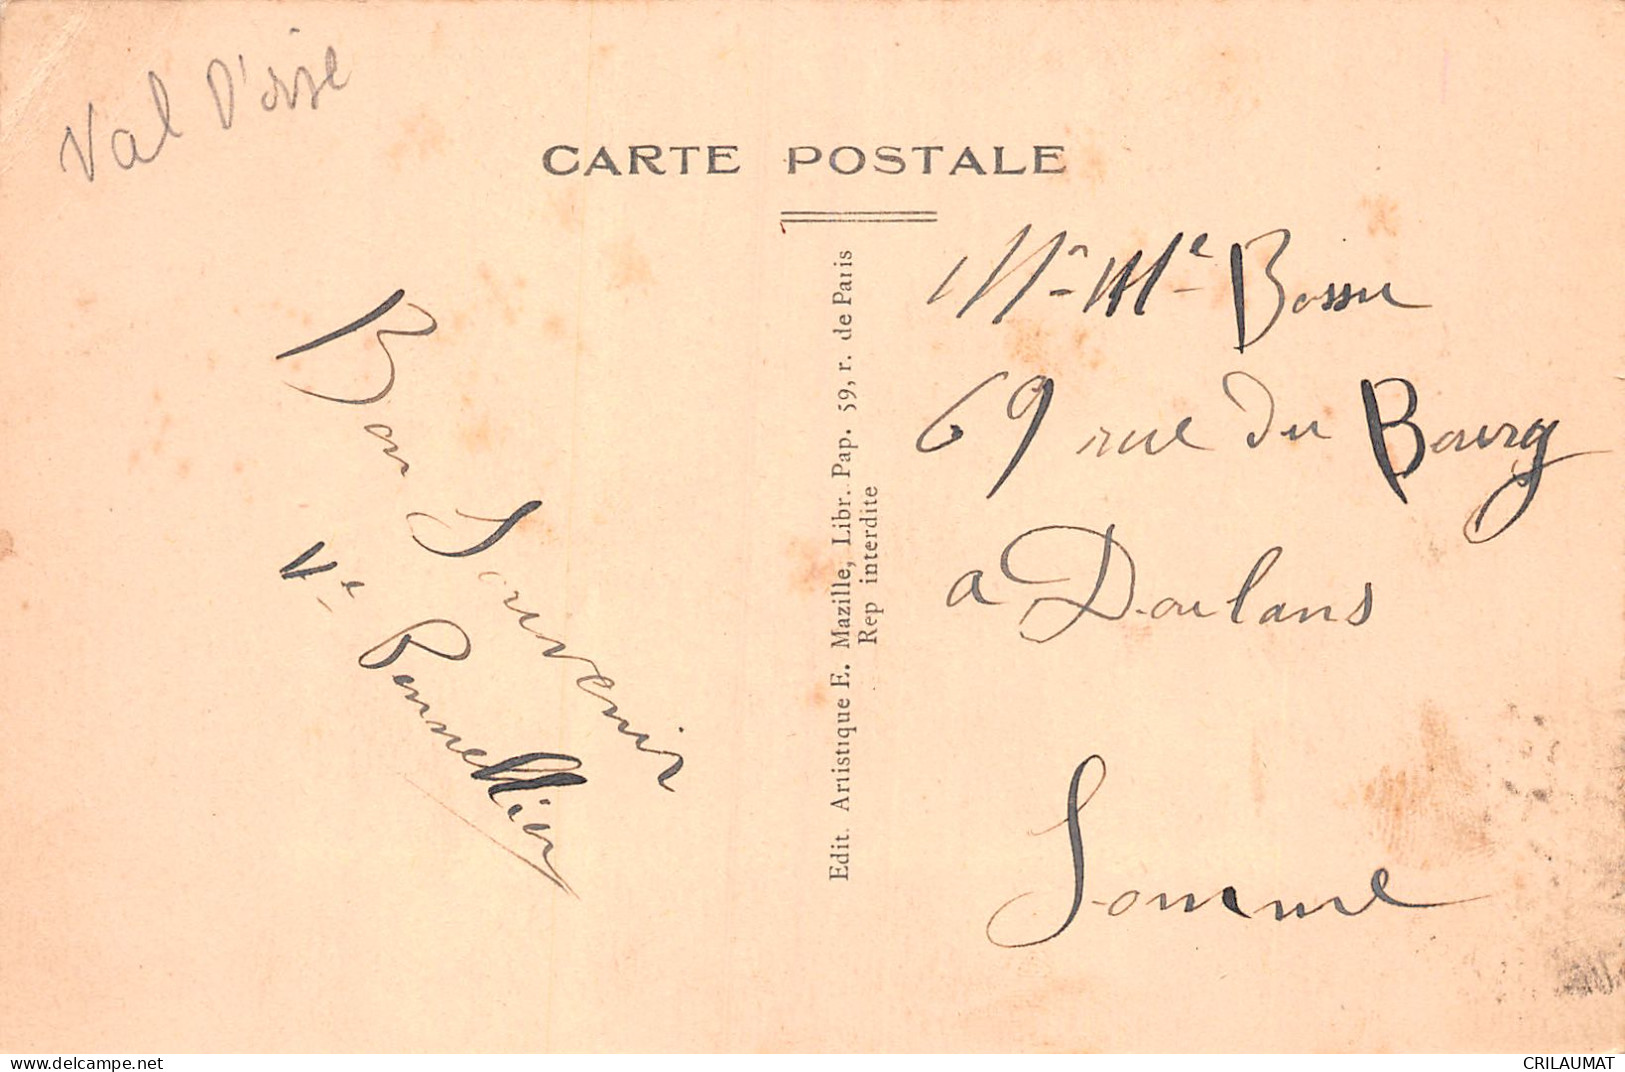 Val D'oise
CARTE POSTALE
Bon Souvenir
Ve Pennellier
Edit. Artistique E. Mazille, Libr. Pap. 59, r. de Paris
Rep interdite
Mr Me Bossu
69 rue du Bourg
a Doulans
Somme
www.delcampe.net
CRILAUMAT